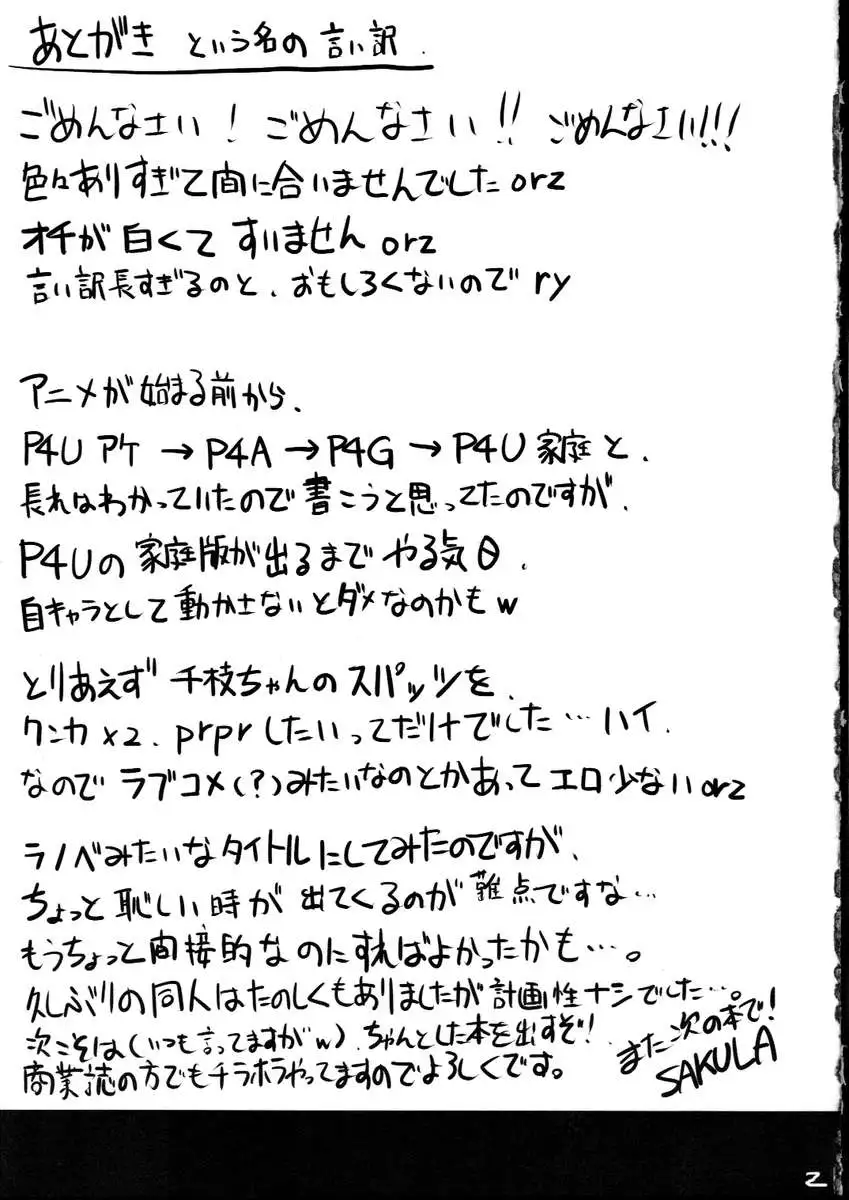 あとがき という名の 言い訳.
ごめんなさい! ごめんなさい!! ごめんなさい!!!
色々ありすぎて間に合いませんでした orz
オチが白くてすいません orz
言い訳長すぎるのと、おもしろくないので ry
アニメが始まる前から、
P4U アケ → P4A → P4G → P4U 家庭と、
長れはわかっていたので書こうと思ってたのですが、
P4Uの家庭版が出るまでやる気θ.
自キャラとして動かさないとダメなのかもw
とりあえず千枝ちゃんのスパッツを、
クンカ×2、prprしたいってだけでした…ハイ.
なのでラブコメ(?)みたいなのとかあってエロ少ない orz
ラノベみたいなタイトルにしてみたのですが、
ちょっと恥しい時が出てくるのが難点ですな…
もうちょっと間接的なのにすればよかったかも…。
久しぶりの同人はたのしくもありましたが計画性ナシでした…。
次こそは(いつも言ってますがw)、ちゃんとした本を出すぞ!
商業誌の方でもチラホラやってますのでよろしくです。
また次の本で!
SAKULA
2